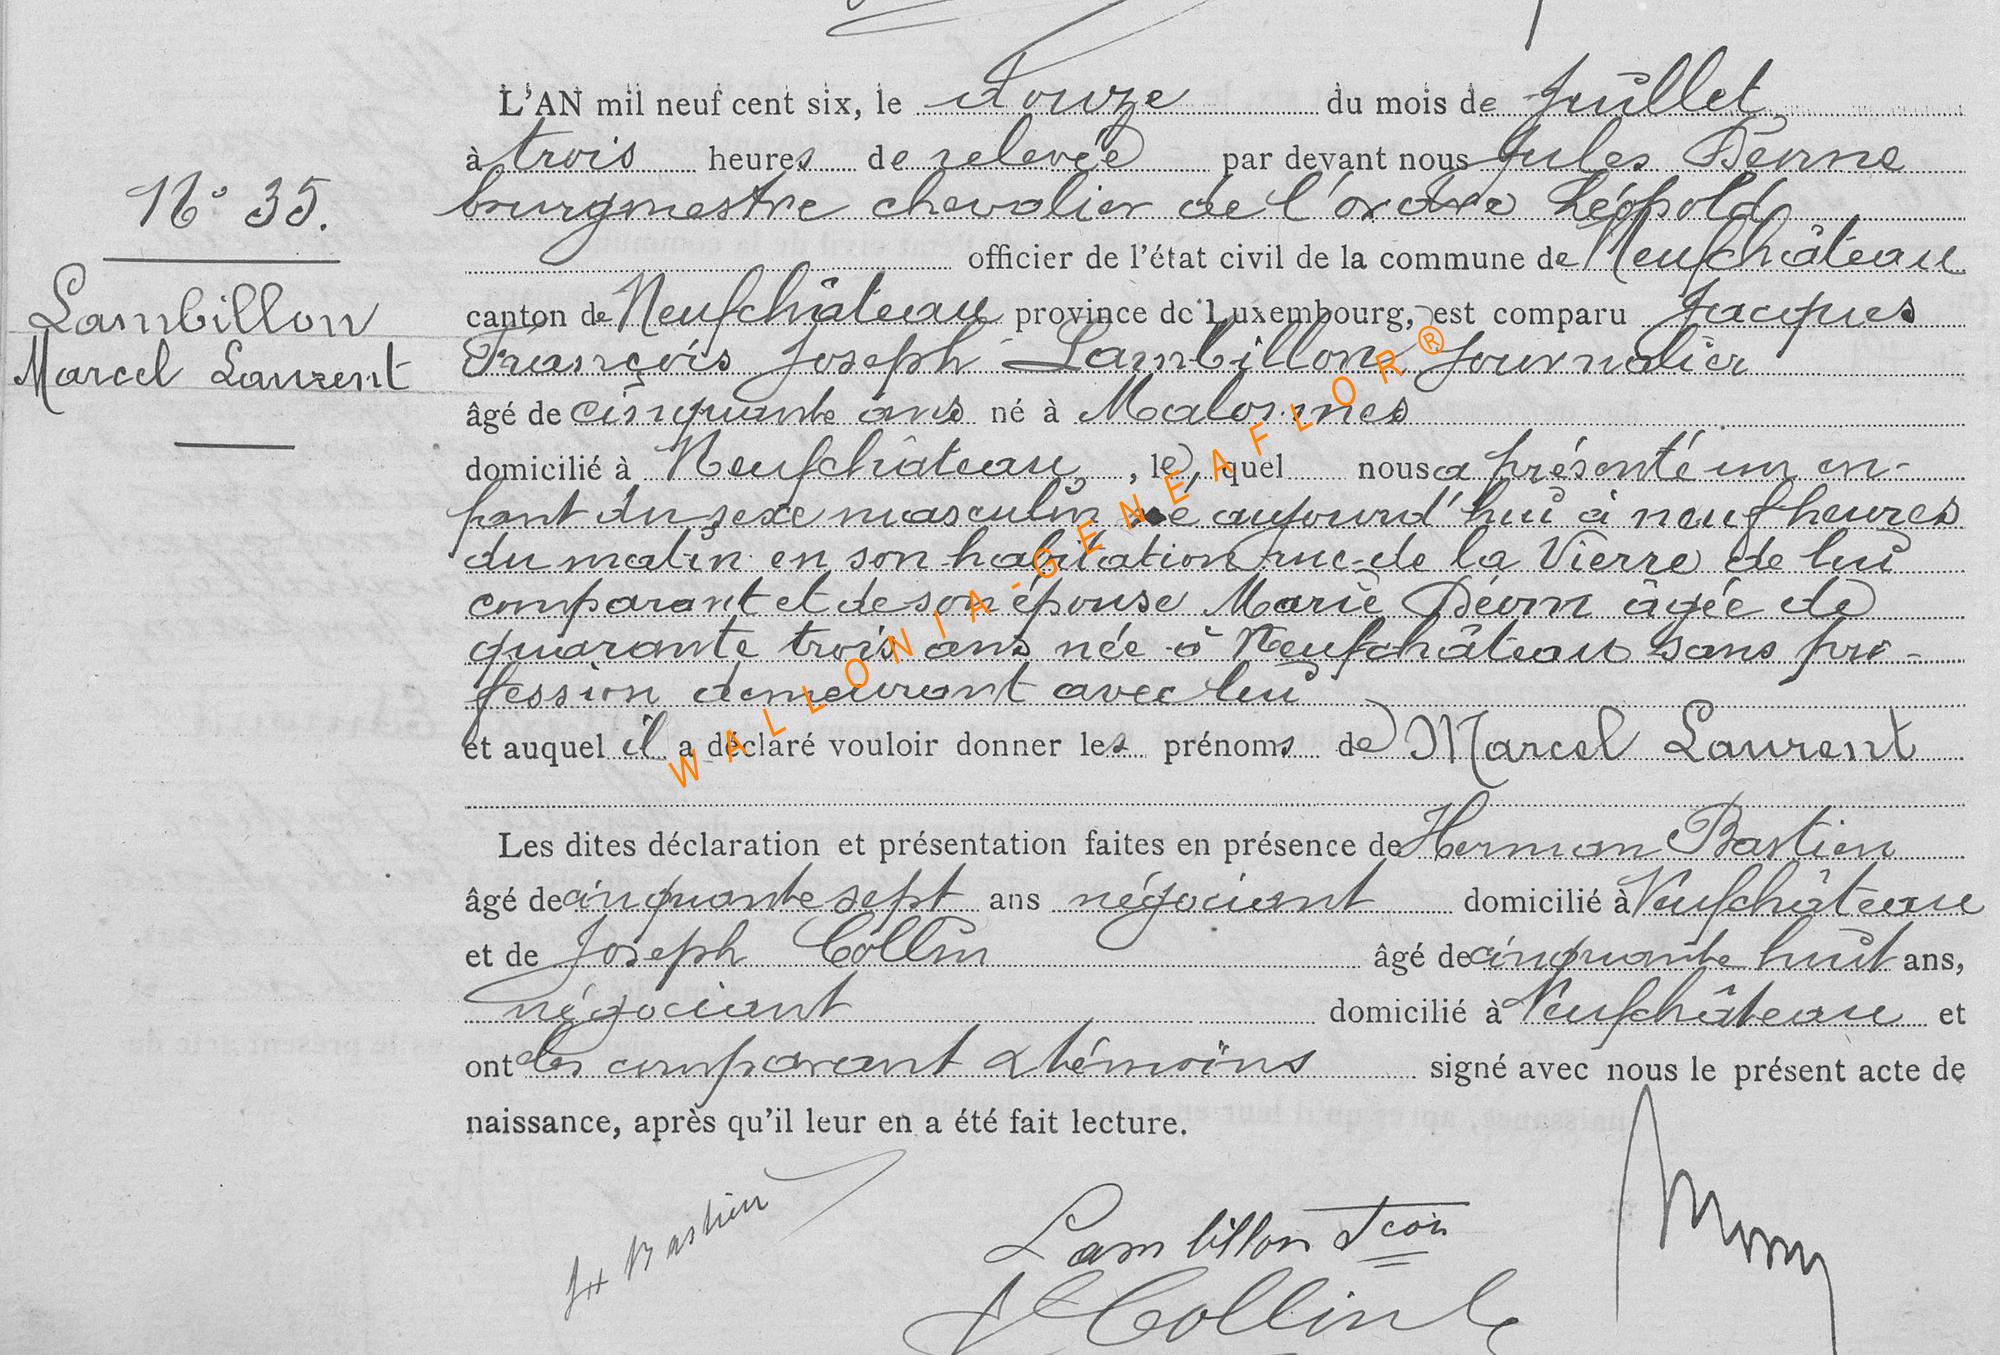 L'AN mil neuf cent six, le douze du mois de Juillet
à trois heures de relevée par devant nous Jules
bourgmestre chevalier de l'ordre Léopold
officier de l'état civil de la commune de Neufchâteau
canton de Neufchâteau province de Luxembourg, est comparu Jacques
François Joseph Lambillon journalier
âgé de cinquante ans né à Malonnes
domicilié à Neufchâteau, lequel nous a présenté un en-
fant du sexe masculin né aujourd'hui à neuf heures
du matin en son habitation rue de la Vierre de lui
comparant et de son épouse Marie âgée de
quarante trois ans née à Neufchâteau sans pro-
fession demeurant avec lui
et auquel il a déclaré vouloir donner les prénoms de Marcel Laurent
Les dites déclaration et présentation faites en présence de Herman Bastien
âgé de cinquante sept ans négociant domicilié à Neufchâteau
et de Joseph Collin âgé de cinquante huit ans,
négociant domicilié à Neufchâteau et
ont les comparant & témoins signé avec nous le présent acte de
naissance, après qu'il leur en a été fait lecture.
N° 35.
Lambillon
Marcel Laurent
WALLONIA-GENEAFLOR®
Bastien
Lambillon Fcois
Collin